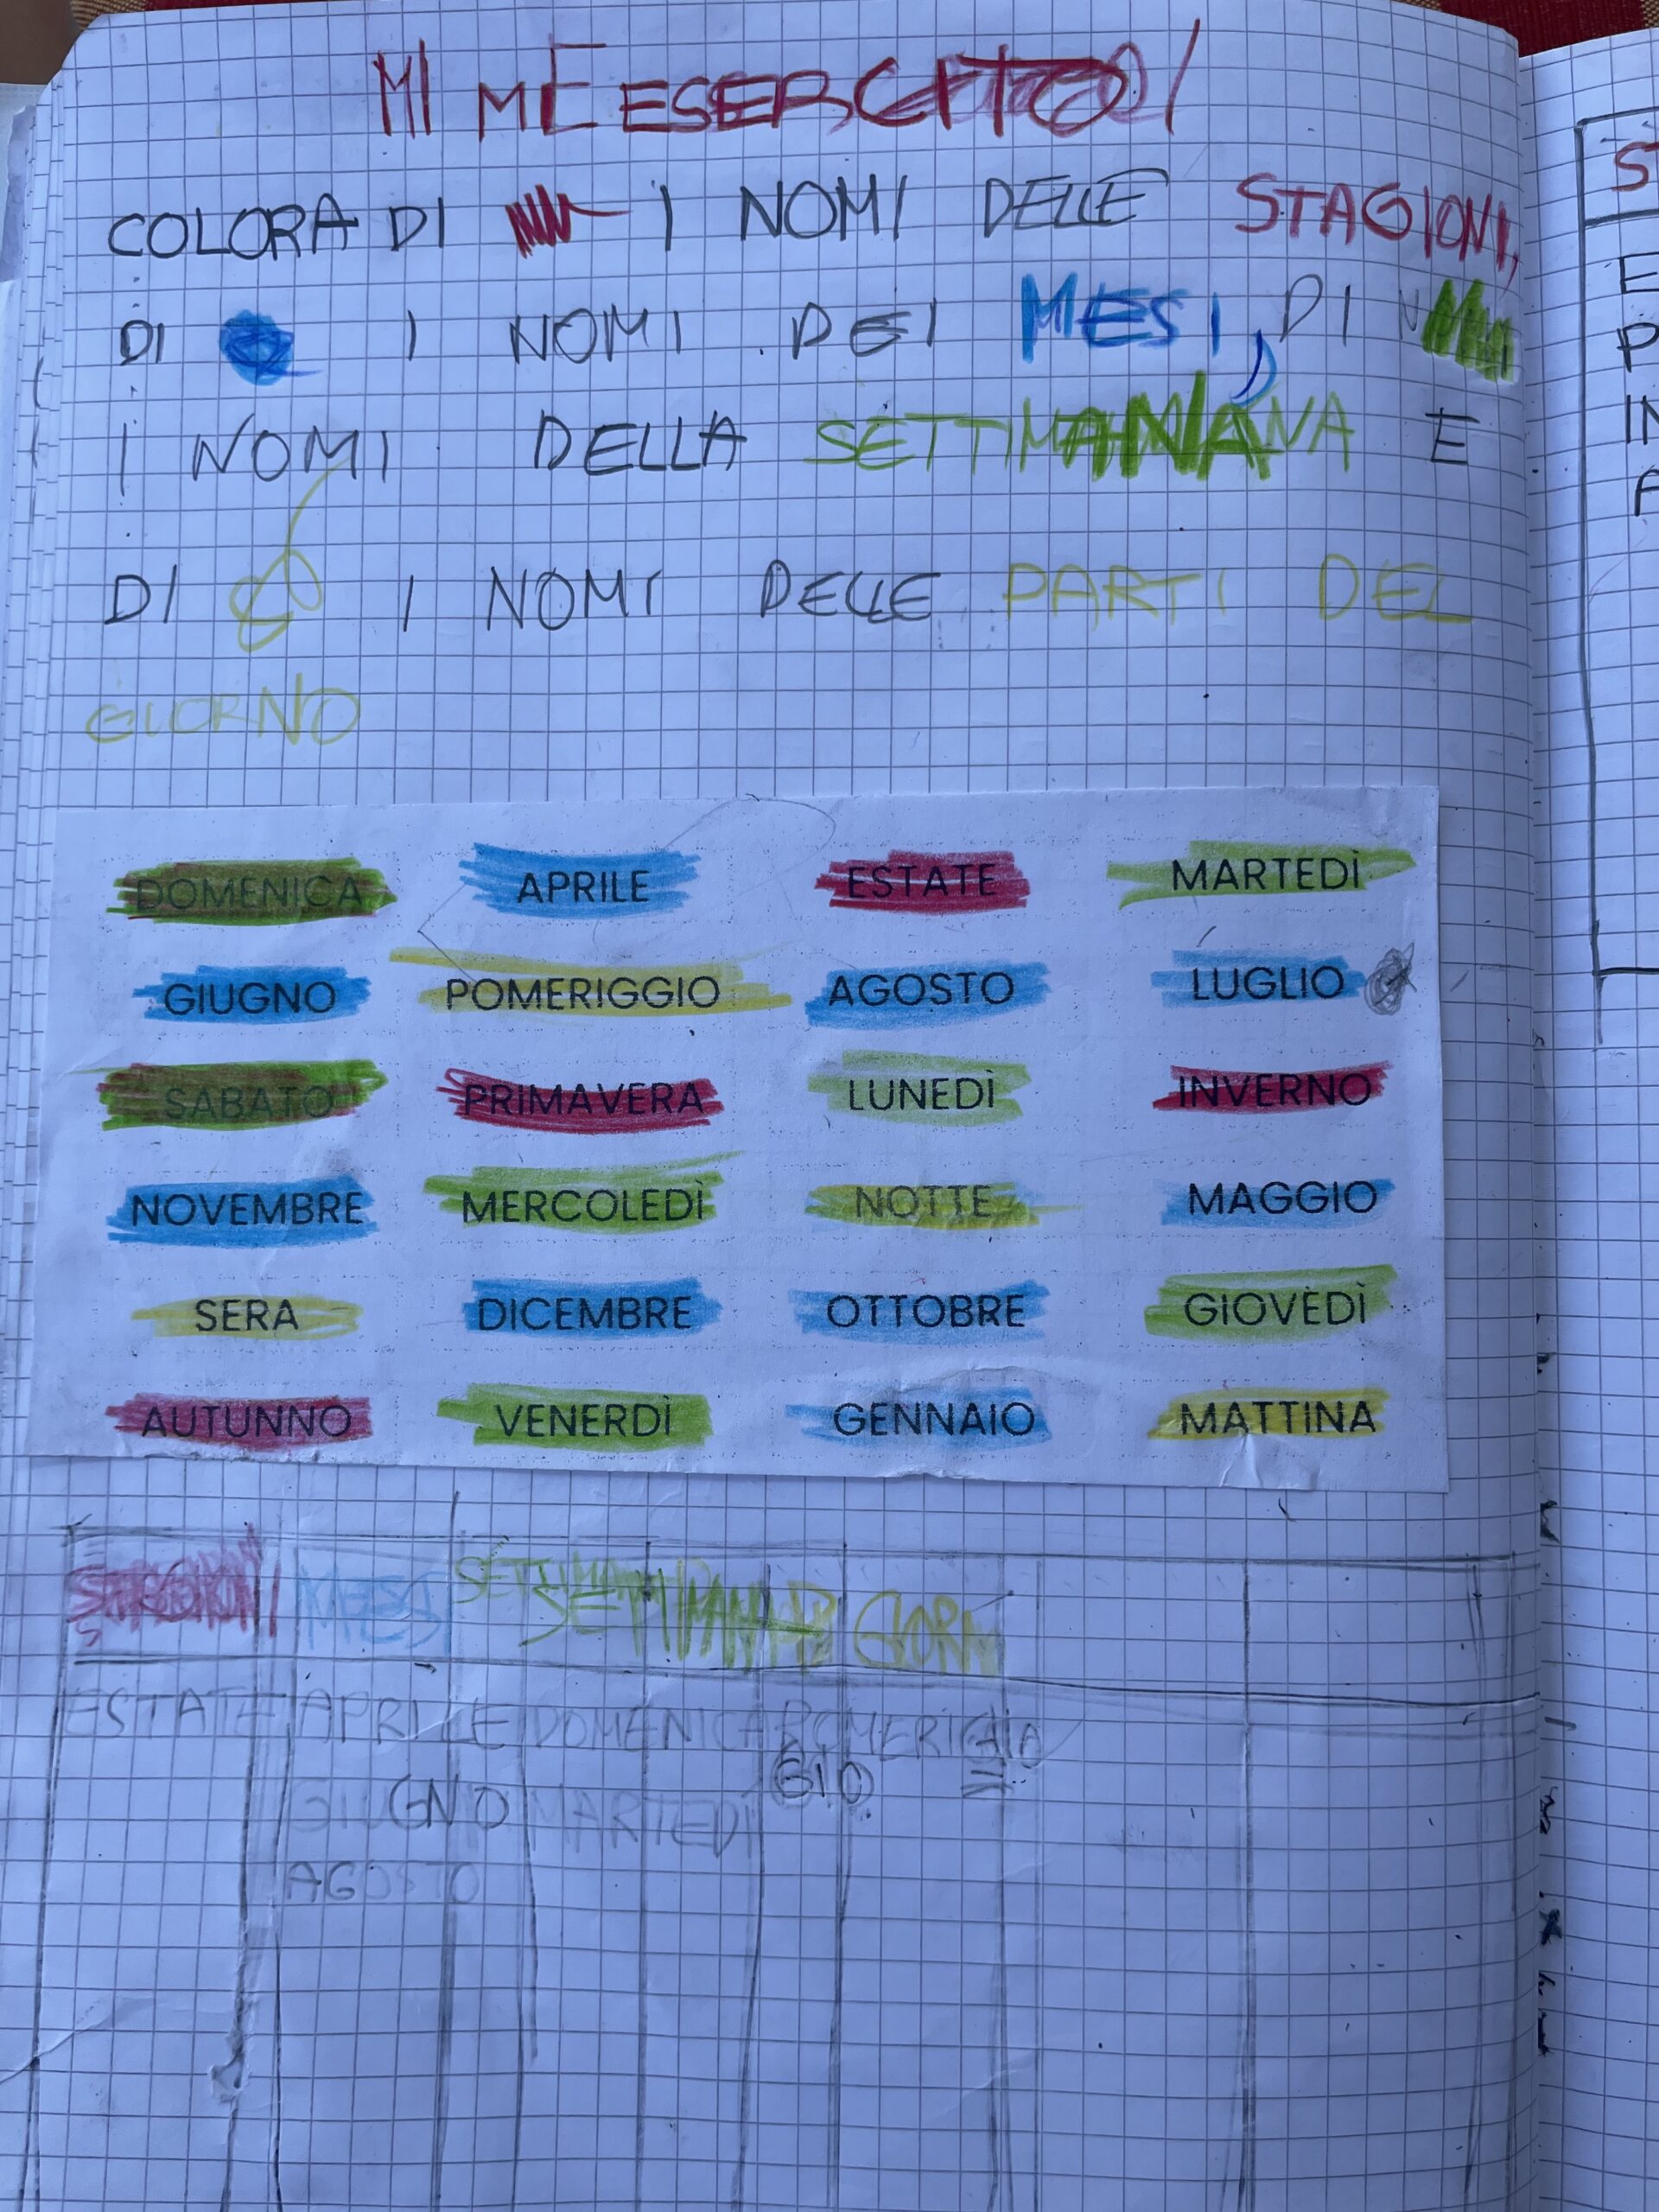 MI ME ESERCITO!
COLORA DI I NOMI DELLE STAGIONI,
DI I NOMI DEI MESI, DI
I NOMI DELLA SETTIMANA E
DI I NOMI DELLE PARTI DEL
GIORNO
DOMENICA APRILE ESTATE MARTEDÌ
GIUGNO POMERIGGIO AGOSTO LUGLIO
SABATO PRIMAVERA LUNEDÌ INVERNO
NOVEMBRE MERCOLEDÌ NOTTE MAGGIO
SERA DICEMBRE OTTOBRE GIOVEDÌ
AUTUNNO VENERDÌ GENNAIO MATTINA
STAGIONI MESI SETTIMANA GIORN
ESTATE APRILE DOMENICA
GIUGNO MARTEDI GIO
AGOSTO